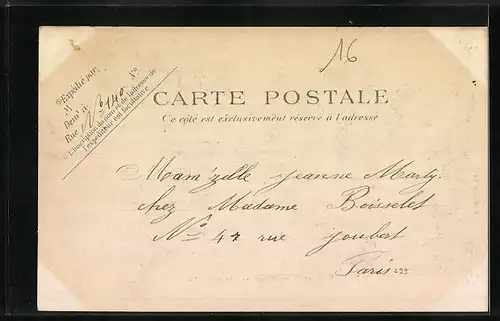 16
Expédié par
M
Demt à
Rue No 140
L'inscription du nom et de l'adresse de
l'expéditeur est facultative
CARTE POSTALE
Ce côté est exclusivement réservé à l'adresse
Mam'zelle Jeanne Marty.
chez Madame Boisselet
No 47 rue Joubert
Paris